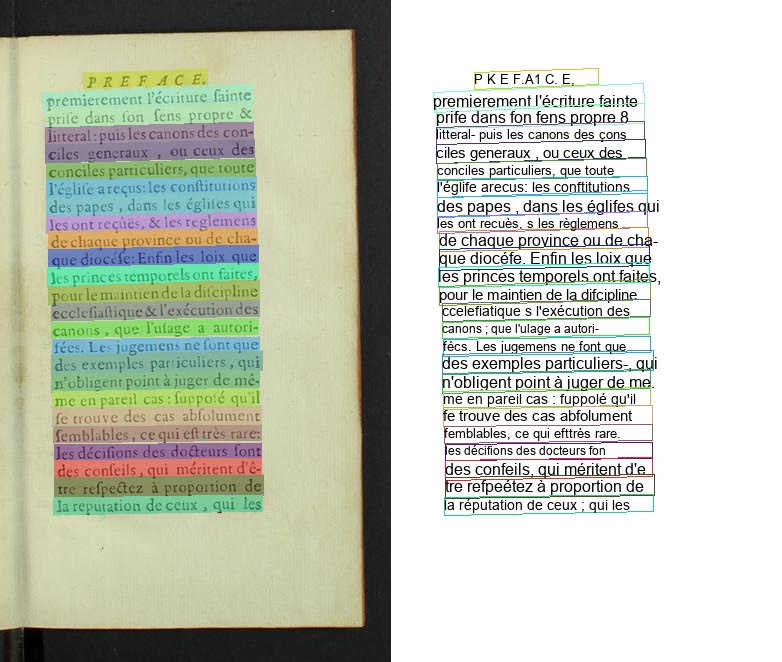 PREFACE.
premierement l'écriture ſainte
priſe dans ſon ſens propre &
litteral : puis les canons des con-
ciles generaux , ou ceux des
conciles particuliers, que toute
l'égliſe a reçus: les conſtitutions
des papes , dans les égliſes qui
les ont reçûës, & les reglemens
de chaque province ou de cha-
que diocéſe: Enfin les loix que
les princes temporels ont faites,
pour le maintien de la diſcipline
eccleſiaſtique & l'exécution des
canons , que l'uſage a autori-
ſées. Les jugemens ne ſont que
des exemples particuliers , qui
n'obligent point à juger de mê-
me en pareil cas : ſuppoſé qu'il
ſe trouve des cas abſolument
ſemblables, ce qui eſt très rare:
les déciſions des docteurs ſont
des conſeils, qui méritent d'ê-
tre reſpectez à proportion de
la reputation de ceux , qui les
P K E F.A1 C. E,
premierement l'écriture fainte
prife dans fon fens propre 8
litteral- puis les canons des çons
ciles generaux , ou ceux des
conciles particuliers, que toute
l'églife arecus: les conftitutions
des papes , dans les églifes qui
les ont recuès, s les règlemens
de chaque province ou de cha-
que diocéfe. Enfin les loix que
les princes temporels ont faites,
pour le maintien de la difcipline
ccelefiatique s l'exécution des
canons ; que l'ulage a autori-
fécs. Les jugemens ne font que
des exemples particuliers-, qui
n'obligent point à juger de me.
me en pareil cas : fuppolé qu'il
fe trouve des cas abfolument
femblables, ce qui efttrès rare.
les décifions des docteurs fon
des confeils, qui méritent d'e
tre refpeétez à proportion de
la réputation de ceux ; qui les